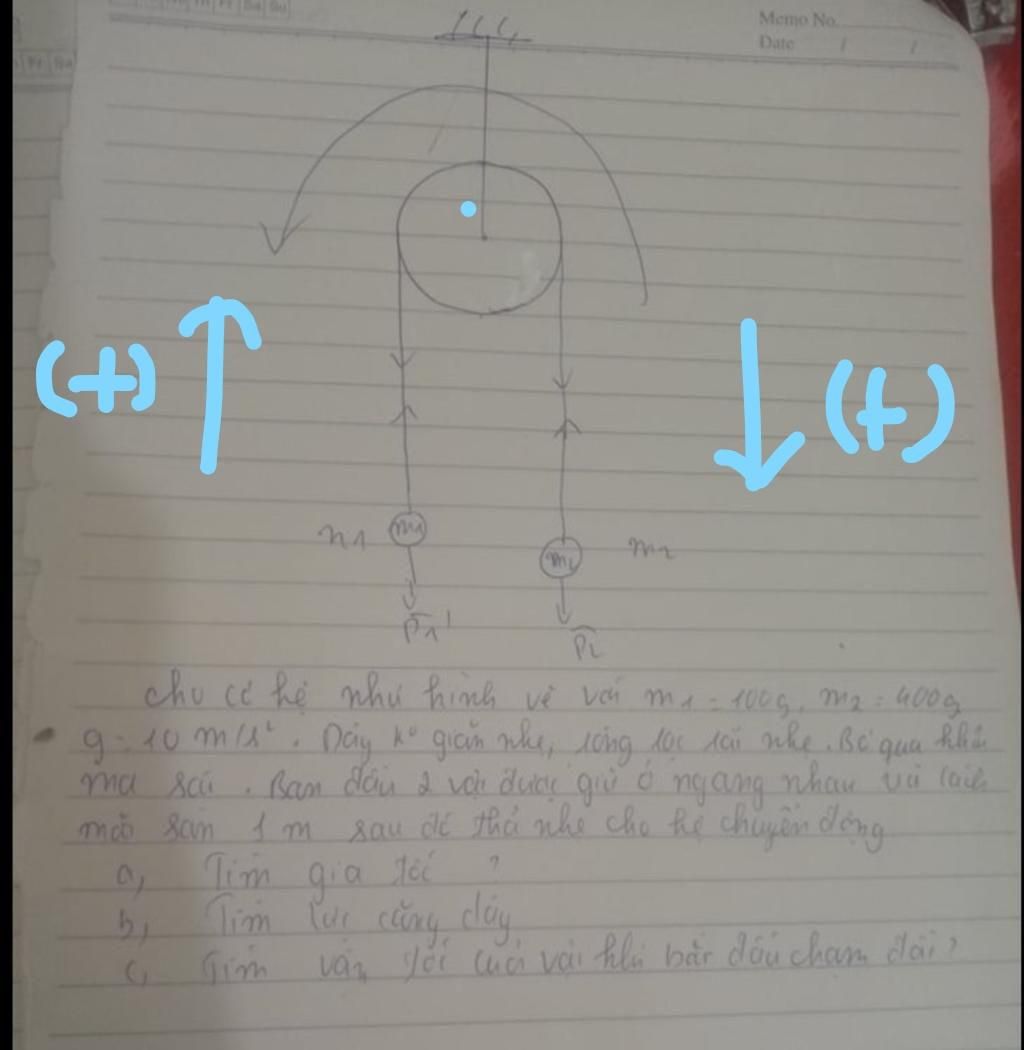 Memo No.
Date / /
(+)
(+)
m1
m2
m2
P1
P2
cho cơ hệ như hình vẽ với m1 = 100g, m2 = 400g
g = 10 m/s². Dây k° giãn nhẹ, ròng rọc rất nhẹ. Bỏ qua
ma sát. Ban đầu 2 vật được giữ ở ngang nhau và cách
sàn 1 m sau đó thả nhẹ cho hệ chuyển động
a, Tìm gia tốc ?
b, Tìm lực căng dây
c, Tìm vận tốc của vật khi bắt đầu chạm đất?